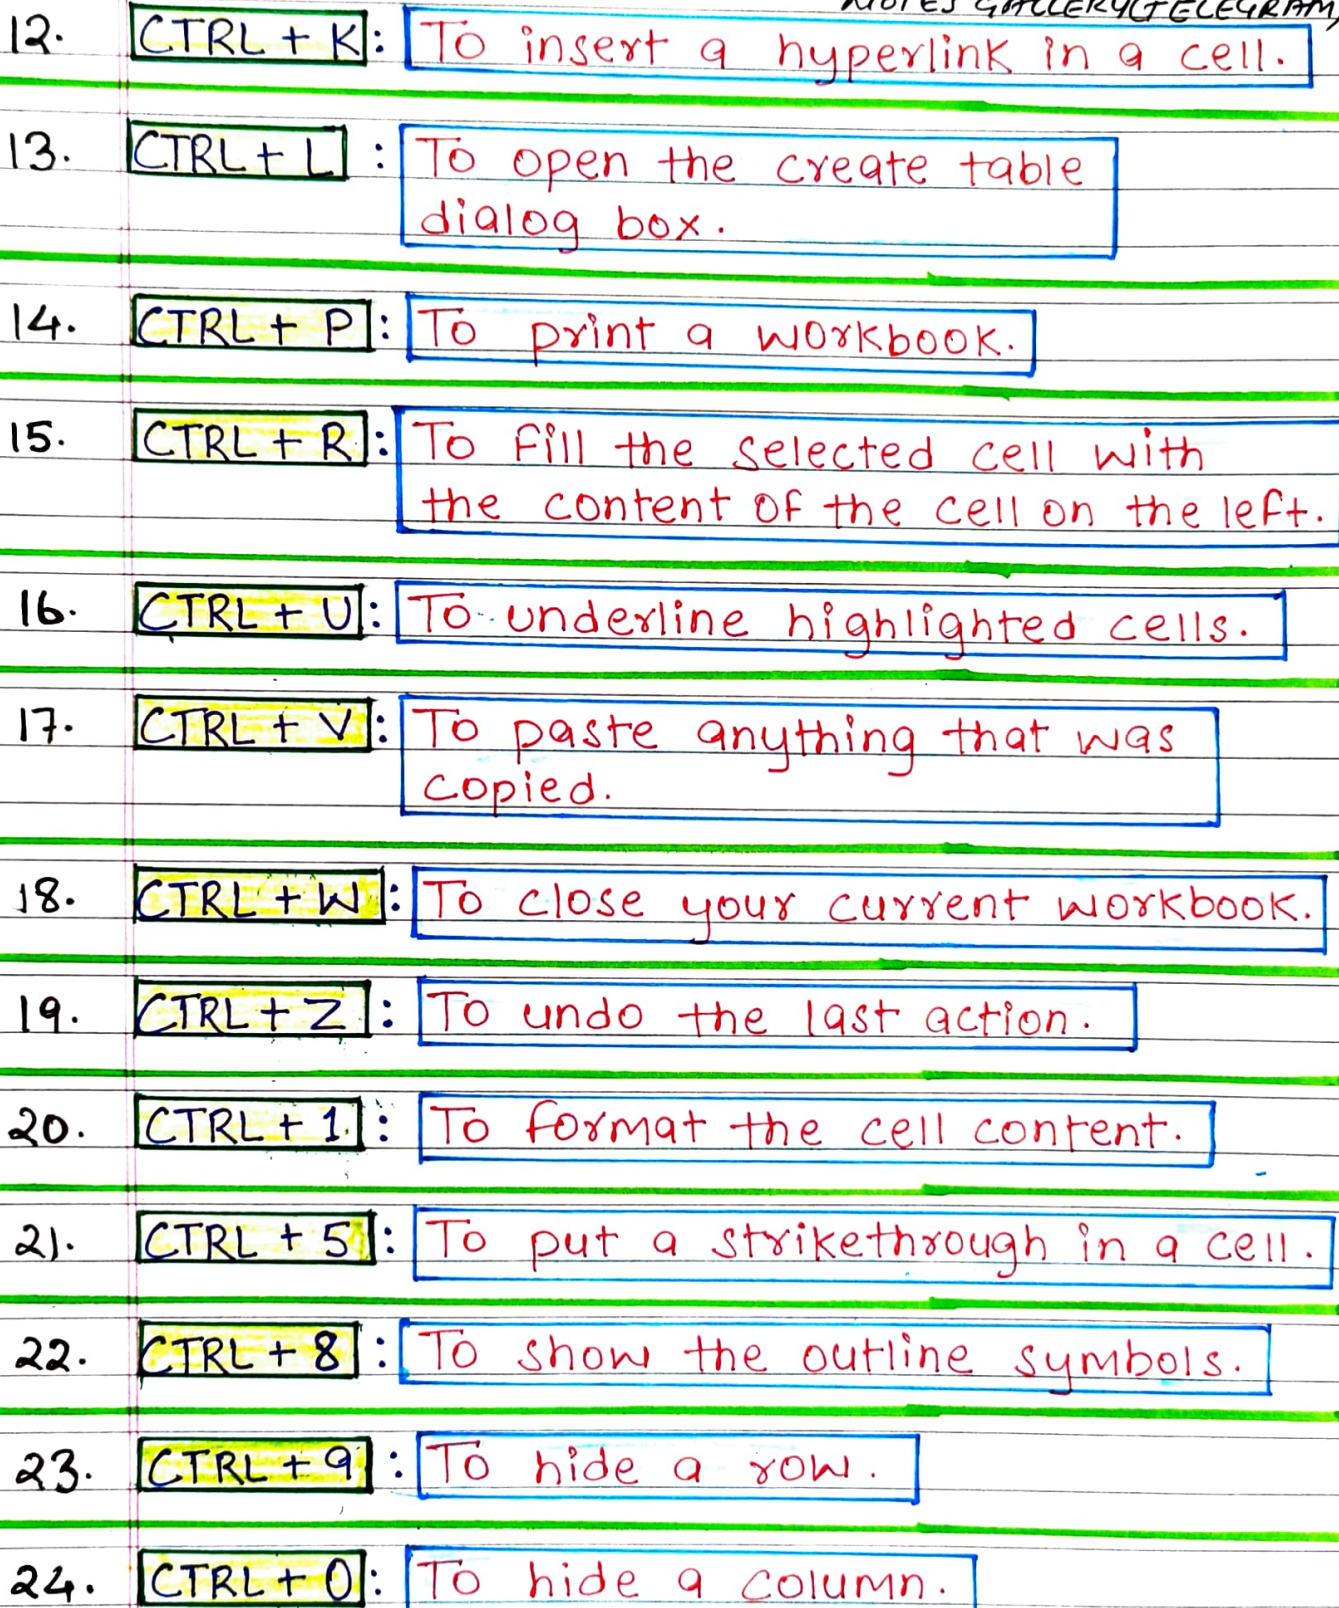 NOTES GALLERY(TELEGRAM)
12. CTRL + K: To insert a hyperlink in a cell.
13. CTRL + L : To open the create table
dialog box.
14. CTRL + P : To print a workbook.
15. CTRL + R : To fill the selected cell with
the content of the cell on the left.
16. CTRL + U : To underline highlighted cells.
17. CTRL + V : To paste anything that was
copied.
18. CTRL + W : To close your current workbook.
19. CTRL + Z : To undo the last action.
20. CTRL + 1 : To format the cell content.
21. CTRL + 5 : To put a strikethrough in a cell.
22. CTRL + 8 : To show the outline symbols.
23. CTRL + 9 : To hide a row.
24. CTRL + 0 : To hide a column.